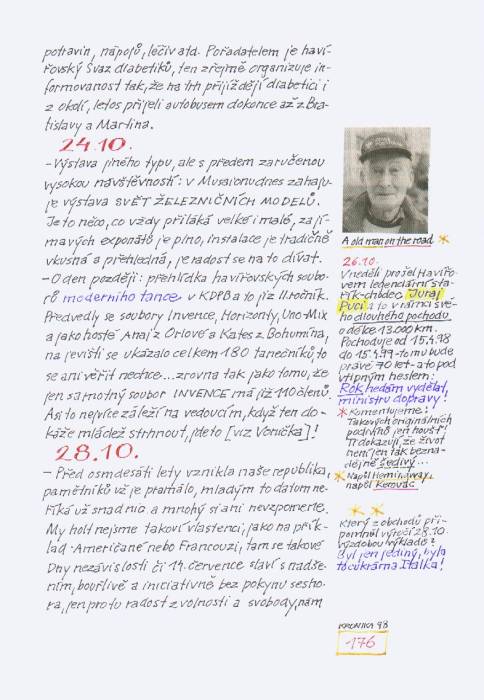 potravin, nápojů, léčiv atd. Pořadatelem je haví-
řovský Svaz diabetiků, ten zřejmě organizuje in-
formovanost tak, že na trh přijíždějí diabetici i
z okolí, letos přijeli autobusem dokonce až z Bra-
tislavy a Martina.
24.10.
- Výstava jiného typu, ale s předem zaručenou
vysokou návštěvností: v Musaionu dnes zahaju-
je výstava SVĚT ŽELEZNIČNÍCH MODELŮ.
Je to něco, co vždy přiláká velké i malé, zají-
mavých exponátů je plno, instalace je tradičně
vkusná a přehledná, je radost se na to dívat.
- O den později: přehlídka havířovských soubo-
rů moderního tance v KDPB a to již II. ročník.
Předvedly se soubory Invence, Horizonty, Uno-Mix
a jako hosté Anaj z Orlové a Kates z Bohumína,
na jevišti se ukázalo celkem 180 tanečníků, to
se ani věřit nechce...zrovna tak jako tomu, že
jen samotný soubor INVENCE má již 110 členů.
Asi to nejvíce záleží na vedoucím, když ten do-
káže mládež strhnout, jde to [viz Vonička]!
28.10.
- Před osmdesáti lety vznikla naše republika,
pamětníků už je pramálo, mladým to datum ne-
říká už snad nic a mnohý si ani nevzpomene.
My holt nejsme takoví vlastenci, jako na přík-
lad Američané nebo Francouzi, tam se takové
Dny nezávislosti či 14. července slaví s nadše-
ním, bouřlivě a iniciativně bez pokynu sesho-
ra, jen pro tu radost z volnosti a svobody, nám
A old man on the road.
26.10.
V neděli prošel Havířo-
vem legendární sta-
řík-chodec Juraj
Puci a to v rámci své-
ho dlouhého pochodu
o délce 13.000 km.
Pochoduje od 15.4.98
do 15.4.99 - tomu bude
právě 70 let - a to pod
vtipným heslem:
Rok nedám vydělat
ministru dopravy!
* Komentujeme:
Takových originálních
podivínů jen houšť!
Ti dokazují, že život
není jen tak bezna-
dějně šedivý...
* Napůl Hemingway,
napůl Kerouac
Který z obchodů při-
pomněl výročí 28.10.
výzdobou výkladů?
Byl jen jediný, byla
to cukrárna Italka!
KRONIKA 98
176